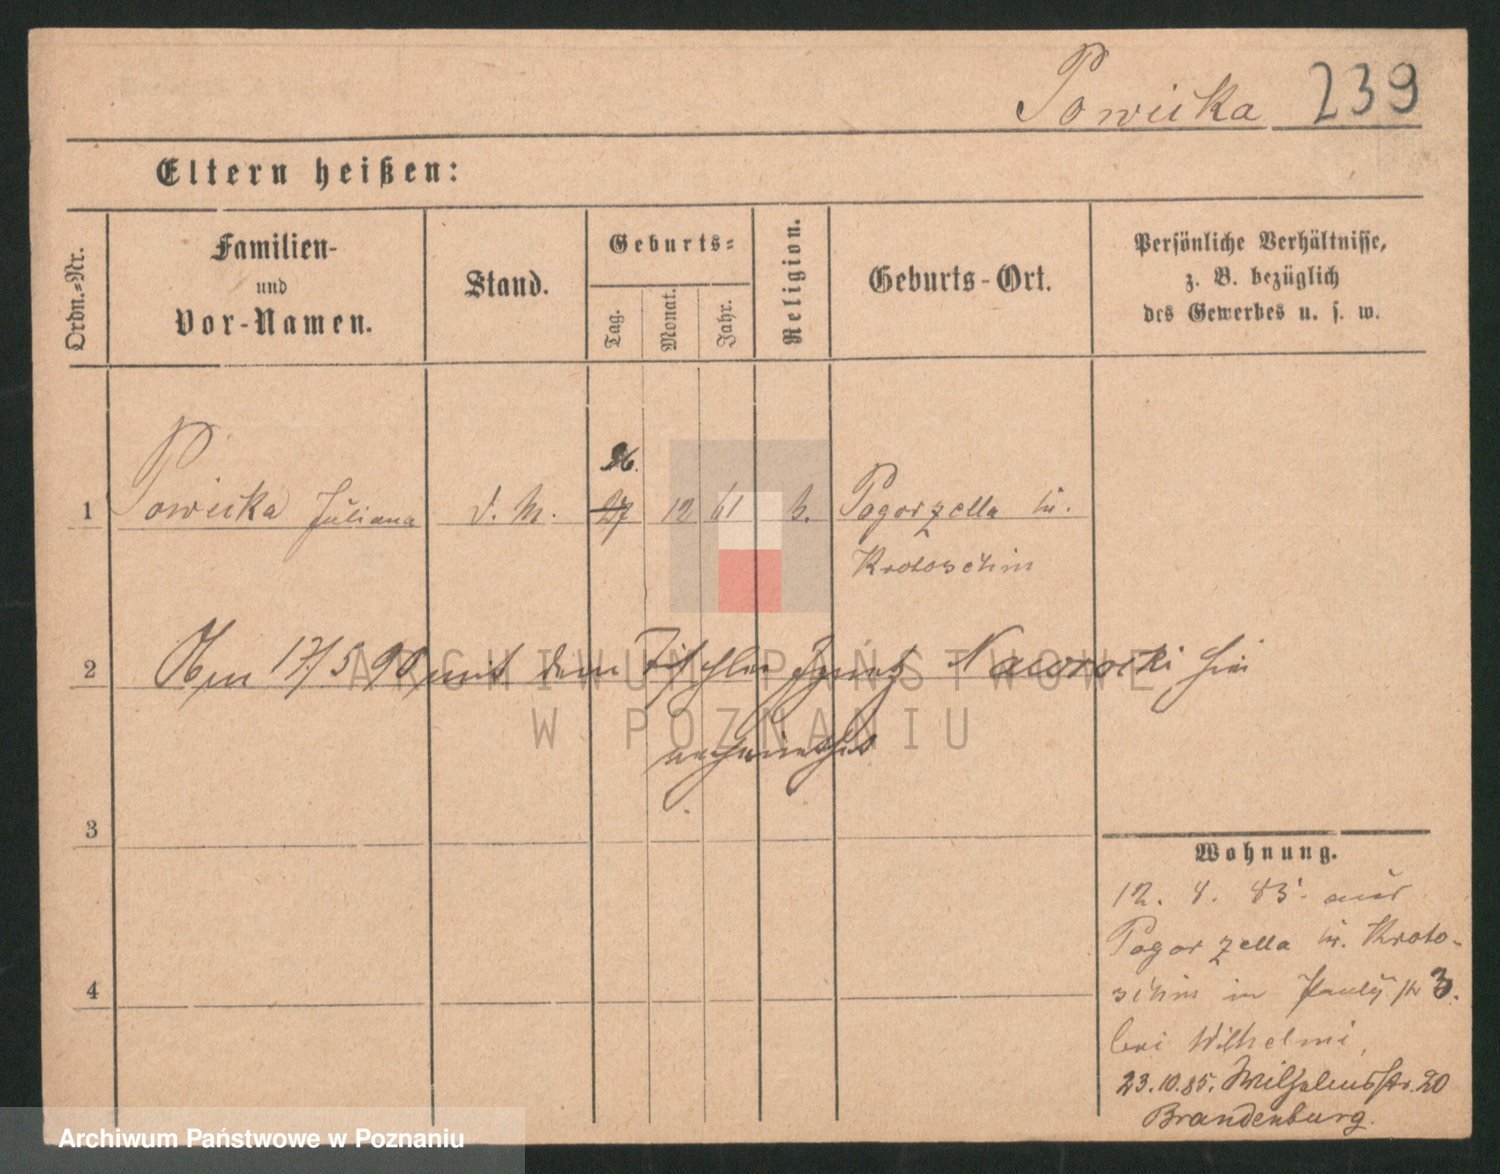 Powicka 239
Eltern heißen:
Ordn.-Nr.
Familien-
und
Vor-Namen.
Stand.
Geburts-
Tag.
Monat.
Jahr.
Religion.
Geburts-Ort.
Persönliche Verhältnisse,
z. B. bezüglich
des Gewerbes u. s. w.
26.
1 Powicka Juliana d. M. 27 12 61 k. Pogorzella kr.
Krotoschin
2 Am 17/5 90 mit dem Tischler Ignatz Nawrocki hier
verheirathet
3
Wohnung.
12. 8. 85. aus
Pogorzella kr. Kroto-
schin in Pauly 3.
4
bei Wilhelmi,
23.10.85. Wilhelmsstr. 20
Brandenburg.
ARCHIWUM PAŃSTWOWE
W POZNANIU
Archiwum Państwowe w Poznaniu